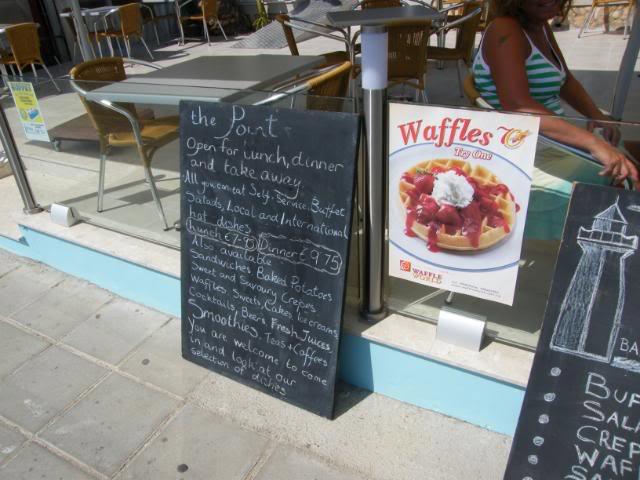 the Point
Open for lunch, dinner
and take away.
All you can eat Self-Service Buffet
Salads, Local and International
hot dishes
Dinner € 9.75
Also available
Sandwiches Baked Potatoes
Sweet and Savoury Crepes
Waffles, Sweets, Cakes, Ice creams
Cocktails, Beers Fresh Juices
Smoothies, Teas + Coffees
You are welcome to come
in and look at our
selection of dishes
Waffles
Try One
WAFFLE
WORLD
BA
BUF
SALA
CREP
WAF